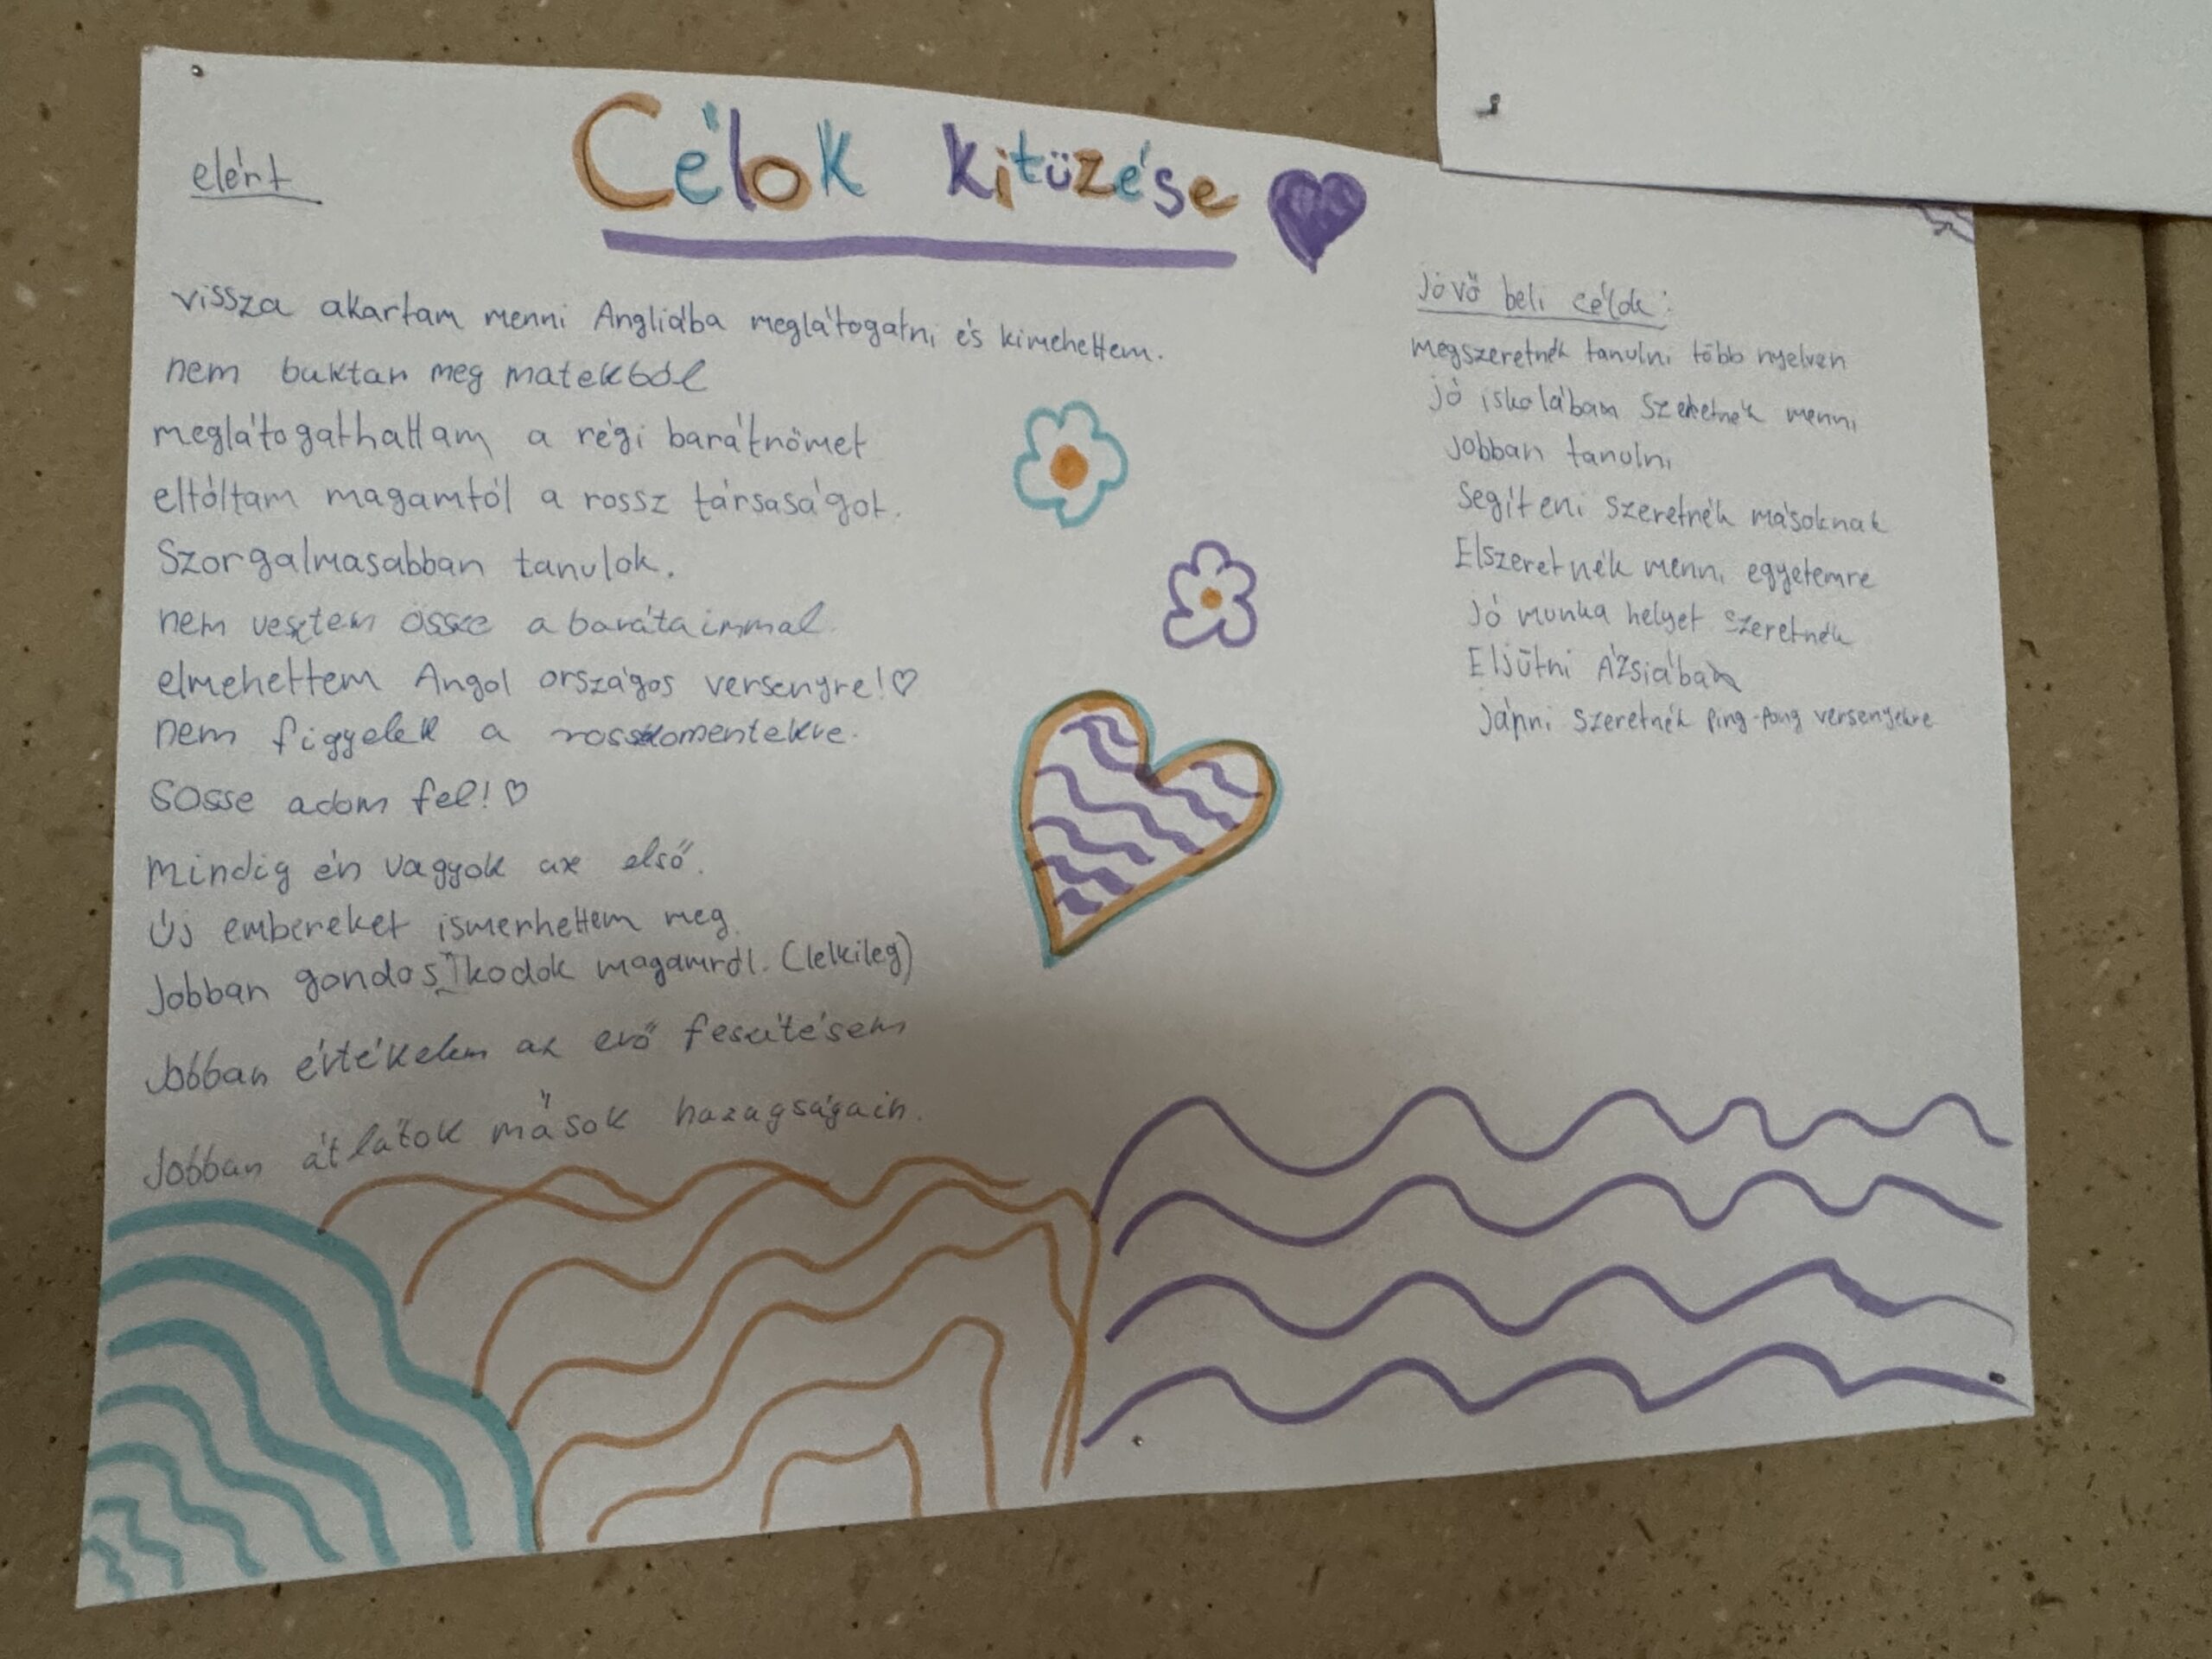 Célok kitüzése
elért
vissza akartam menni Angliába meglátogatni és kimehettem.
nem buktam meg matekból
meglátogathattam a régi barátnőmet
eltóltam magamtól a rossz társaságot.
Szorgalmasabban tanulok.
nem vesztem össze a barátaimmal.
elmehettem Angol országos versenyre!♡
nem figyelek a rossz komentekre.
Sosse adom fel!♡
Mindig én vagyok az első.
Új embereket ismerhettem meg
Jobban gondoskodok magamról. (lelkileg)
Jobban értékelem az erő feszítésem
Jobban átlátok mások hazugságain.
Jövő beli célok:
megszeretnék tanulni több nyelven
jó iskolában szeretnék menni
Jobban tanulni
Segíteni szeretnék másoknak
Elszeretnék menni egyetemre
Jó munka helyet szeretnék
Eljútni Ázsiában
Járni szeretnék Ping-Pong versenyekre